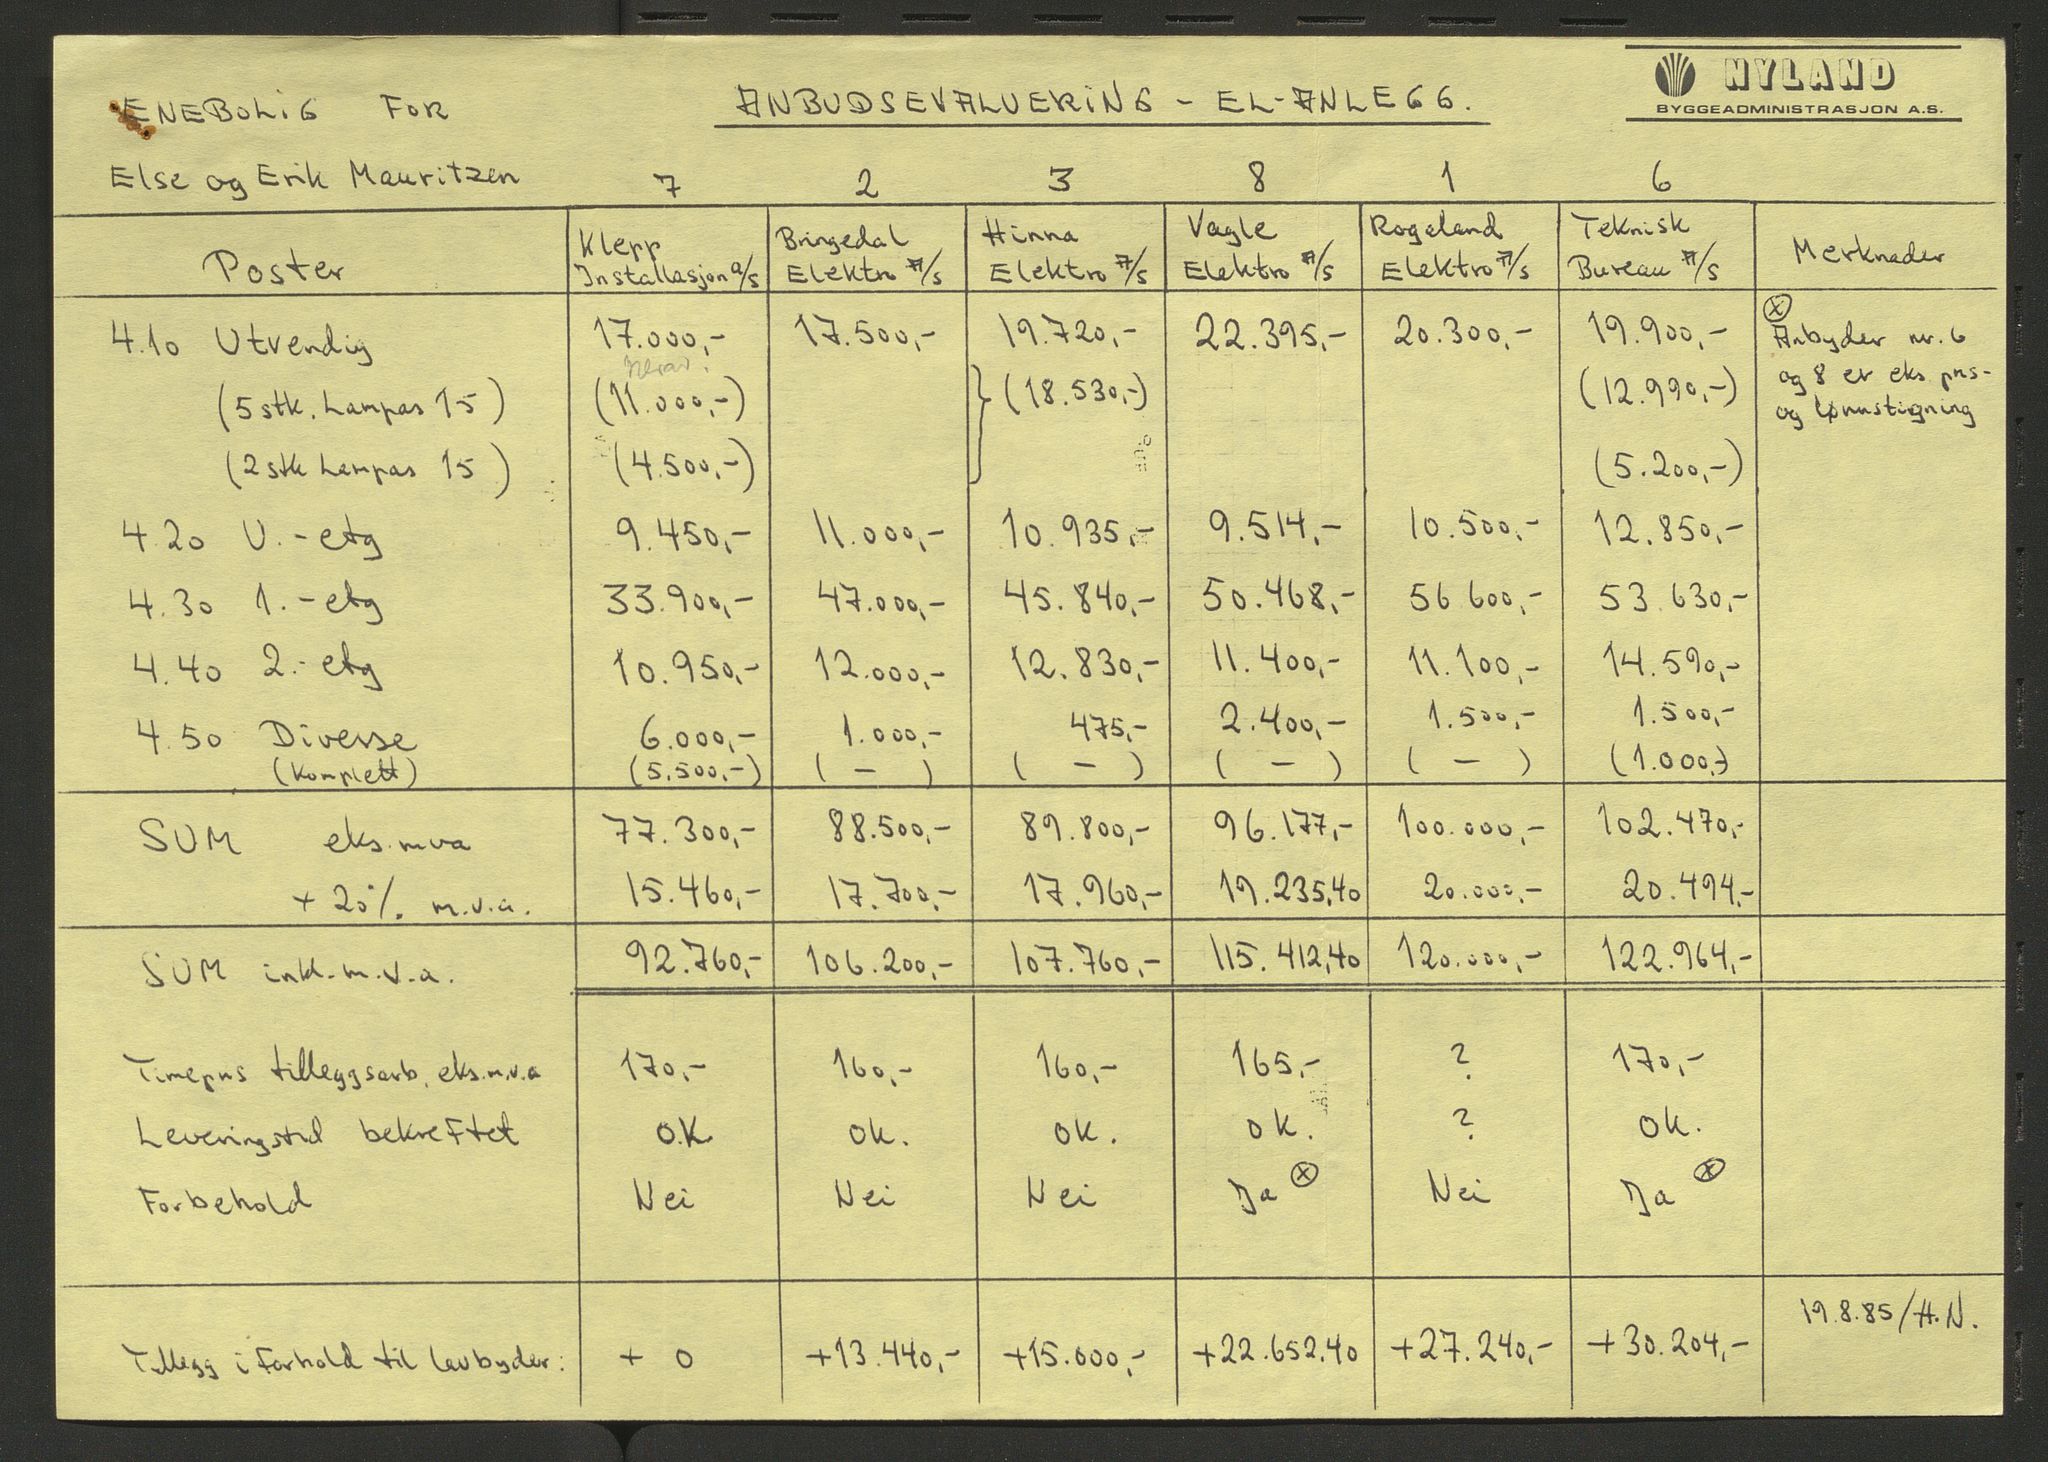 NYLAND
BYGGEADMINISTRASJON A.S.
ENEBOLIG FOR ANBUDSEVALUERING - EL-ANLEGG.
Else og Erik Mauritzen 7 2 3 8 1 6
Poster Klepp Installasjon a/s Bringedal Elektro A/S Hinna Elektro A/S Vagle Elektro A/S Rogaland Elektro A/S Teknisk Bureau A/S Merknader
4.10 Utvendig 17.000,- 17.500,- 19.720,- 22.395,- 20.300,- 19.900,-
(5 stk. Lampas 15) (11.000,-) (18.530,-) (12.990,-)
(2 stk Lampas 15) (4.500,-) (5.200,-)
ⓧ
Anbyder nr. 6
og 8 er eks pris-
og lønnstigning
4.20 U.-etg 9.450,- 11.000,- 10.935,- 9.514,- 10.500,- 12.850,-
4.30 1.-etg 33.900,- 47.000,- 45.840,- 50.468,- 56.600,- 53.630,-
4.40 2.-etg 10.950,- 12.000,- 12.830,- 11.400,- 11.100,- 14.590,-
4.50 Diverse 6.000,- 1.000,- 475,- 2.400,- 1.500,- 1.500,-
(komplett) (5.500,-) ( - ) ( - ) ( - ) ( - ) (1.000,-)
SUM eks. mva 77.300,- 88.500,- 89.800,- 96.177,- 100.000,- 102.470,-
+ 20% m.v.a. 15.460,- 17.700,- 17.960,- 19.235,40 20.000,- 20.494,-
SUM inkl. m.v.a. 92.760,- 106.200,- 107.760,- 115.412,40 120.000,- 122.964,-
Timepris tilleggsarb. eks. m.v.a 170,- 160,- 160,- 165,- ? 170,-
Leveringstid bekreftet O.K. OK. OK. OK. ? OK.
Forbehold Nei Nei Nei Ja ⓧ Nei Ja ⓧ
Tillegg i forhold til lavbyder: + 0 +13.440,- +15.000,- +22.652,40 +27.240,- +30.204,-
19.8.85/H.N.